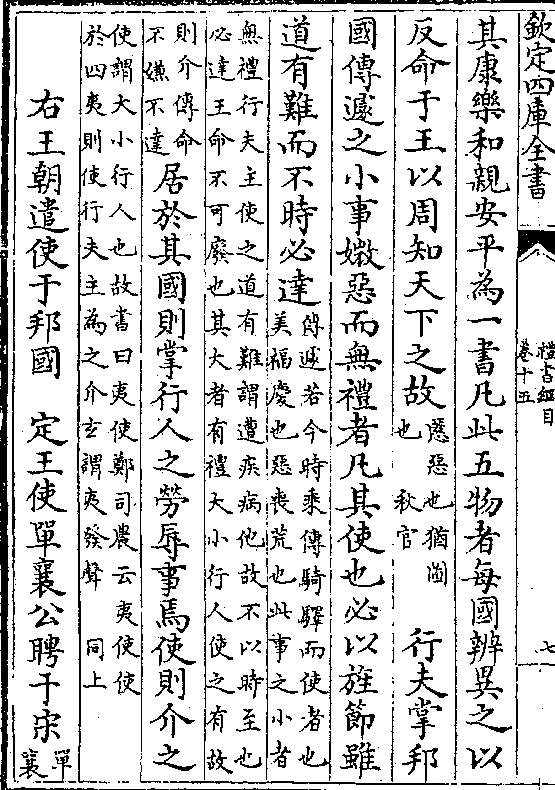 欽定四庫全書
禮書綱目
卷十五
七
其康樂和親安平為一書凡此五物者每國辨異之以
反命于王以周知天下之故
慝惡也猶圖
也 秋官
行夫掌邦
國傳遽之小事媺惡而無禮者凡其使也必以旌節雖
道有難而不時必達
傳遽若今時乘傳騎驛而使者也
美福慶也惡喪荒也此事之小者
無禮行夫主使之道有難謂遭疾病他故不以時至也
必達王命不可廢也其大者有禮大小行人使之有故
則介傳命
不嫌不達
居於其國則掌行人之勞辱事焉使則介之
使謂大小行人也故書曰夷使鄭司農云夷使使
於四夷則使行夫主為之介玄謂夷發聲 同上
右王朝遣使于邦國 定王使單襄公聘于宋
單
襄